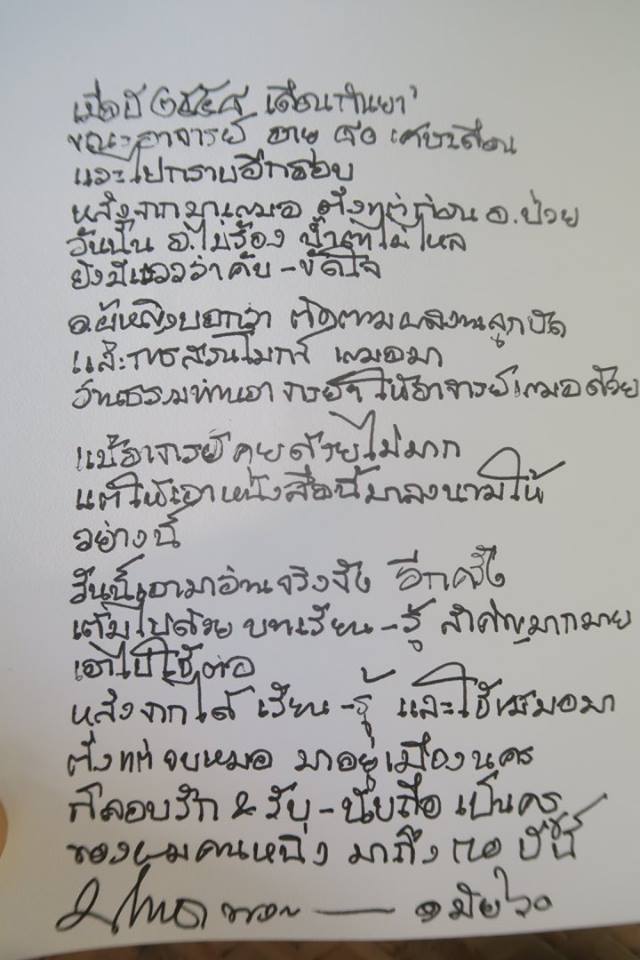 เมื่อปี ๒๕๕๘ เดือนกันยา
ขณะอาจารย์ อายุ ๘๐ เศษๆเดือน
และไปกราบอีกรอบ
หลังจากมาเสมอ ตั้งแต่ก่อน อ.ป่วย
วันนั้น อ.ไม่ร้อง น้ำตาไม่ไหล
ยังมีแววว่าคับ-ขัดใจ
อ.ผู้หญิงบอกว่า ติดตามผลงานลูกปัด
และการสวนโมกข์ เสมอมา
อ่านธรรมท่านอาจารย์ฯ ให้อาจารย์เสมอด้วย
แม้อาจารย์คุยด้วยไม่มาก
แต่ให้เอาหนังสือนี้มาลงนามให้
อย่างนี้
วันนี้เอามาอ่านจริงจัง อีกครั้ง
เต็มไปด้วย บทเรียน-รู้ สำคัญมากมาย
เอาไปใช้ต่อ
หลังจากได้ เรียน-รู้ และใช้เสมอมา
ตั้งแต่ จบหมอ มาอยู่เมืองนคร
ก็ลอบรัก & รับ-นับถือ เป็นครู
ของผมคนหนึ่ง มาถึง ๓๐ ปีนี้
๑ มิย ๖๐